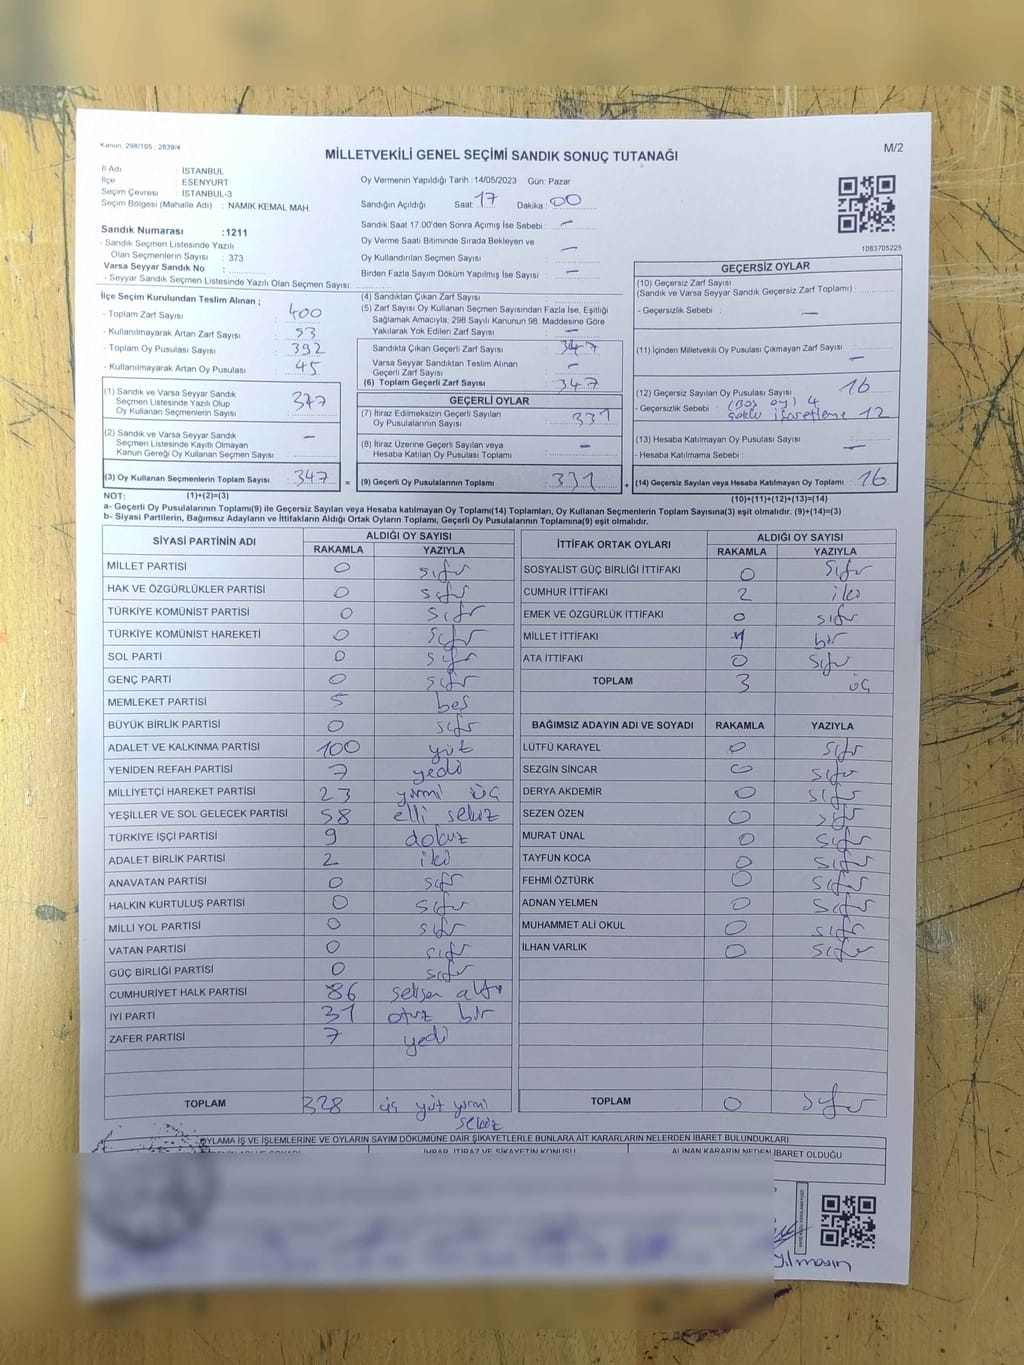 Kanun, 298/105 , 2839/4
M/2
MİLLETVEKİLİ GENEL SEÇİMİ SANDIK SONUÇ TUTANAĞI
İl Adı : İSTANBUL
İlçe : ESENYURT
Seçim Çevresi : İSTANBUL-3
Seçim Bölgesi (Mahalle Adı) : NAMIK KEMAL MAH.
Oy Vermenin Yapıldığı Tarih : 14/05/2023 Gün: Pazar
Sandığın Açıldığı Saat: 17 Dakika: 00
Sandık Saat 17:00'den Sonra Açımış İse Sebebi : —
Oy Verme Saati Bitiminde Sırada Bekleyen ve
Oy Kullandırılan Seçmen Sayısı : —
Birden Fazla Sayım Döküm Yapılmış İse Sayısı : —
1083705225
Sandık Numarası :1211
- Sandık Seçmen Listesinde Yazılı
Olan Seçmenlerin Sayısı : 373
Varsa Seyyar Sandık No :
- Seyyar Sandık Seçmen Listesinde Yazılı Olan Seçmen Sayısı:
İlçe Seçim Kurulundan Teslim Alınan ;
- Toplam Zarf Sayısı : 400
- Kullanılmayarak Artan Zarf Sayısı : 53
- Toplam Oy Pusulası Sayısı : 392
- Kullanılmayarak Artan Oy Pusulası : 45
(1) Sandık ve Varsa Seyyar Sandık
Seçmen Listesinde Yazılı Olup
Oy Kullanan Seçmenlerin Sayısı : 347
(2) Sandık ve Varsa Seyyar Sandık
Seçmen Listesinde Kayıtlı Olmayan
Kanun Gereği Oy Kullanan Seçmen Sayısı : —
(3) Oy Kullanan Seçmenlerin Toplam Sayısı : 347
(4) Sandıktan Çıkan Zarf Sayısı :
(5) Zarf Sayısı Oy Kullanan Seçmen Sayısından Fazla İse, Eşitliği
Sağlamak Amacıyla, 298 Sayılı Kanunun 98. Maddesine Göre
Yakılarak Yok Edilen Zarf Sayısı : —
Sandıkta Çıkan Geçerli Zarf Sayısı : 347
Varsa Seyyar Sandıktan Teslim Alınan
Geçerli Zarf Sayısı : —
(6) Toplam Geçerli Zarf Sayısı : 347
GEÇERLİ OYLAR
(7) İtiraz Edilmeksizin Geçerli Sayılan
Oy Pusulalarının Sayısı : 331
(8) İtiraz Üzerine Geçerli Sayılan veya
Hesaba Katılan Oy Pusulası Toplamı : —
= (9) Geçerli Oy Pusulalarının Toplamı : 331 +
GEÇERSİZ OYLAR
(10) Geçersiz Zarf Sayısı
(Sandık ve Varsa Seyyar Sandık Geçersiz Zarf Toplamı) :
- Geçersizlik Sebebi : —
(11) İçinden Milletvekili Oy Pusulası Çıkmayan Zarf Sayısı : —
(12) Geçersiz Sayılan Oy Pusulası Sayısı : 16
- Geçersizlik Sebebi : (Boş oy) 4
çoklu işaretleme 12
(13) Hesaba Katılmayan Oy Pusulası Sayısı : —
- Hesaba Katılmama Sebebi :
(14) Geçersiz Sayılan veya Hesaba Katılmayan Oy Toplamı : 16
NOT: (1)+(2)=(3) (10)+(11)+(12)+(13)=(14)
a- Geçerli Oy Pusulalarının Toplamı(9) ile Geçersiz Sayılan veya Hesaba katılmayan Oy Toplamı(14) Toplamları, Oy Kullanan Seçmenlerin Toplam Sayısına(3) eşit olmalıdır. (9)+(14)=(3)
b- Siyasi Partilerin, Bağımsız Adayların ve İttifakların Aldığı Ortak Oyların Toplamı, Geçerli Oy Pusulalarının Toplamına(9) eşit olmalıdır.
SİYASİ PARTİNİN ADI ALDIĞI OY SAYISI
RAKAMLA YAZIYLA
MİLLET PARTİSİ 0 sıfır
HAK VE ÖZGÜRLÜKLER PARTİSİ 0 sıfır
TÜRKİYE KOMÜNİST PARTİSİ 0 sıfır
TÜRKİYE KOMÜNİST HAREKETİ 0 sıfır
SOL PARTİ 0 sıfır
GENÇ PARTİ 0 sıfır
MEMLEKET PARTİSİ 5 beş
BÜYÜK BİRLİK PARTİSİ 0 sıfır
ADALET VE KALKINMA PARTİSİ 100 yüz
YENİDEN REFAH PARTİSİ 7 yedi
MİLLİYETÇİ HAREKET PARTİSİ 23 yirmi üç
YEŞİLLER VE SOL GELECEK PARTİSİ 58 elli sekiz
TÜRKİYE İŞÇİ PARTİSİ 9 dokuz
ADALET BİRLİK PARTİSİ 2 iki
ANAVATAN PARTİSİ 0 sıfır
HALKIN KURTULUŞ PARTİSİ 0 sıfır
MİLLİ YOL PARTİSİ 0 sıfır
VATAN PARTİSİ 0 sıfır
GÜÇ BİRLİĞİ PARTİSİ 0 sıfır
CUMHURİYET HALK PARTİSİ 86 seksen altı
İYİ PARTİ 31 otuz bir
ZAFER PARTİSİ 7 yedi
TOPLAM 328 üç yüz yirmi
sekiz
İTTİFAK ORTAK OYLARI ALDIĞI OY SAYISI
RAKAMLA YAZIYLA
SOSYALİST GÜÇ BİRLİĞİ İTTİFAKI 0 sıfır
CUMHUR İTTİFAKI 2 iki
EMEK VE ÖZGÜRLÜK İTTİFAKI 0 sıfır
MİLLET İTTİFAKI 1 bir
ATA İTTİFAKI 0 sıfır
TOPLAM 3 üç
BAĞIMSIZ ADAYIN ADI VE SOYADI RAKAMLA YAZIYLA
LÜTFÜ KARAYEL 0 sıfır
SEZGİN SİNCAR 0 sıfır
DERYA AKDEMİR 0 sıfır
SEZEN ÖZEN 0 sıfır
MURAT ÜNAL 0 sıfır
TAYFUN KOCA 0 sıfır
FEHMİ ÖZTÜRK 0 sıfır
ADNAN YELMEN 0 sıfır
MUHAMMET ALİ OKUL 0 sıfır
İLHAN VARLIK 0 sıfır
TOPLAM 0 sıfır
OYLAMA İŞ VE İŞLEMLERİNE VE OYLARIN SAYIM DÖKÜMÜNE DAİR ŞİKAYETLERLE BUNLARA AİT KARARLARIN NELERDEN İBARET BULUNDUKLARI
İHBAR, İTİRAZ VE ŞİKAYETİN KONUSU ALINAN KARARIN NEDEN İBARET OLDUĞU